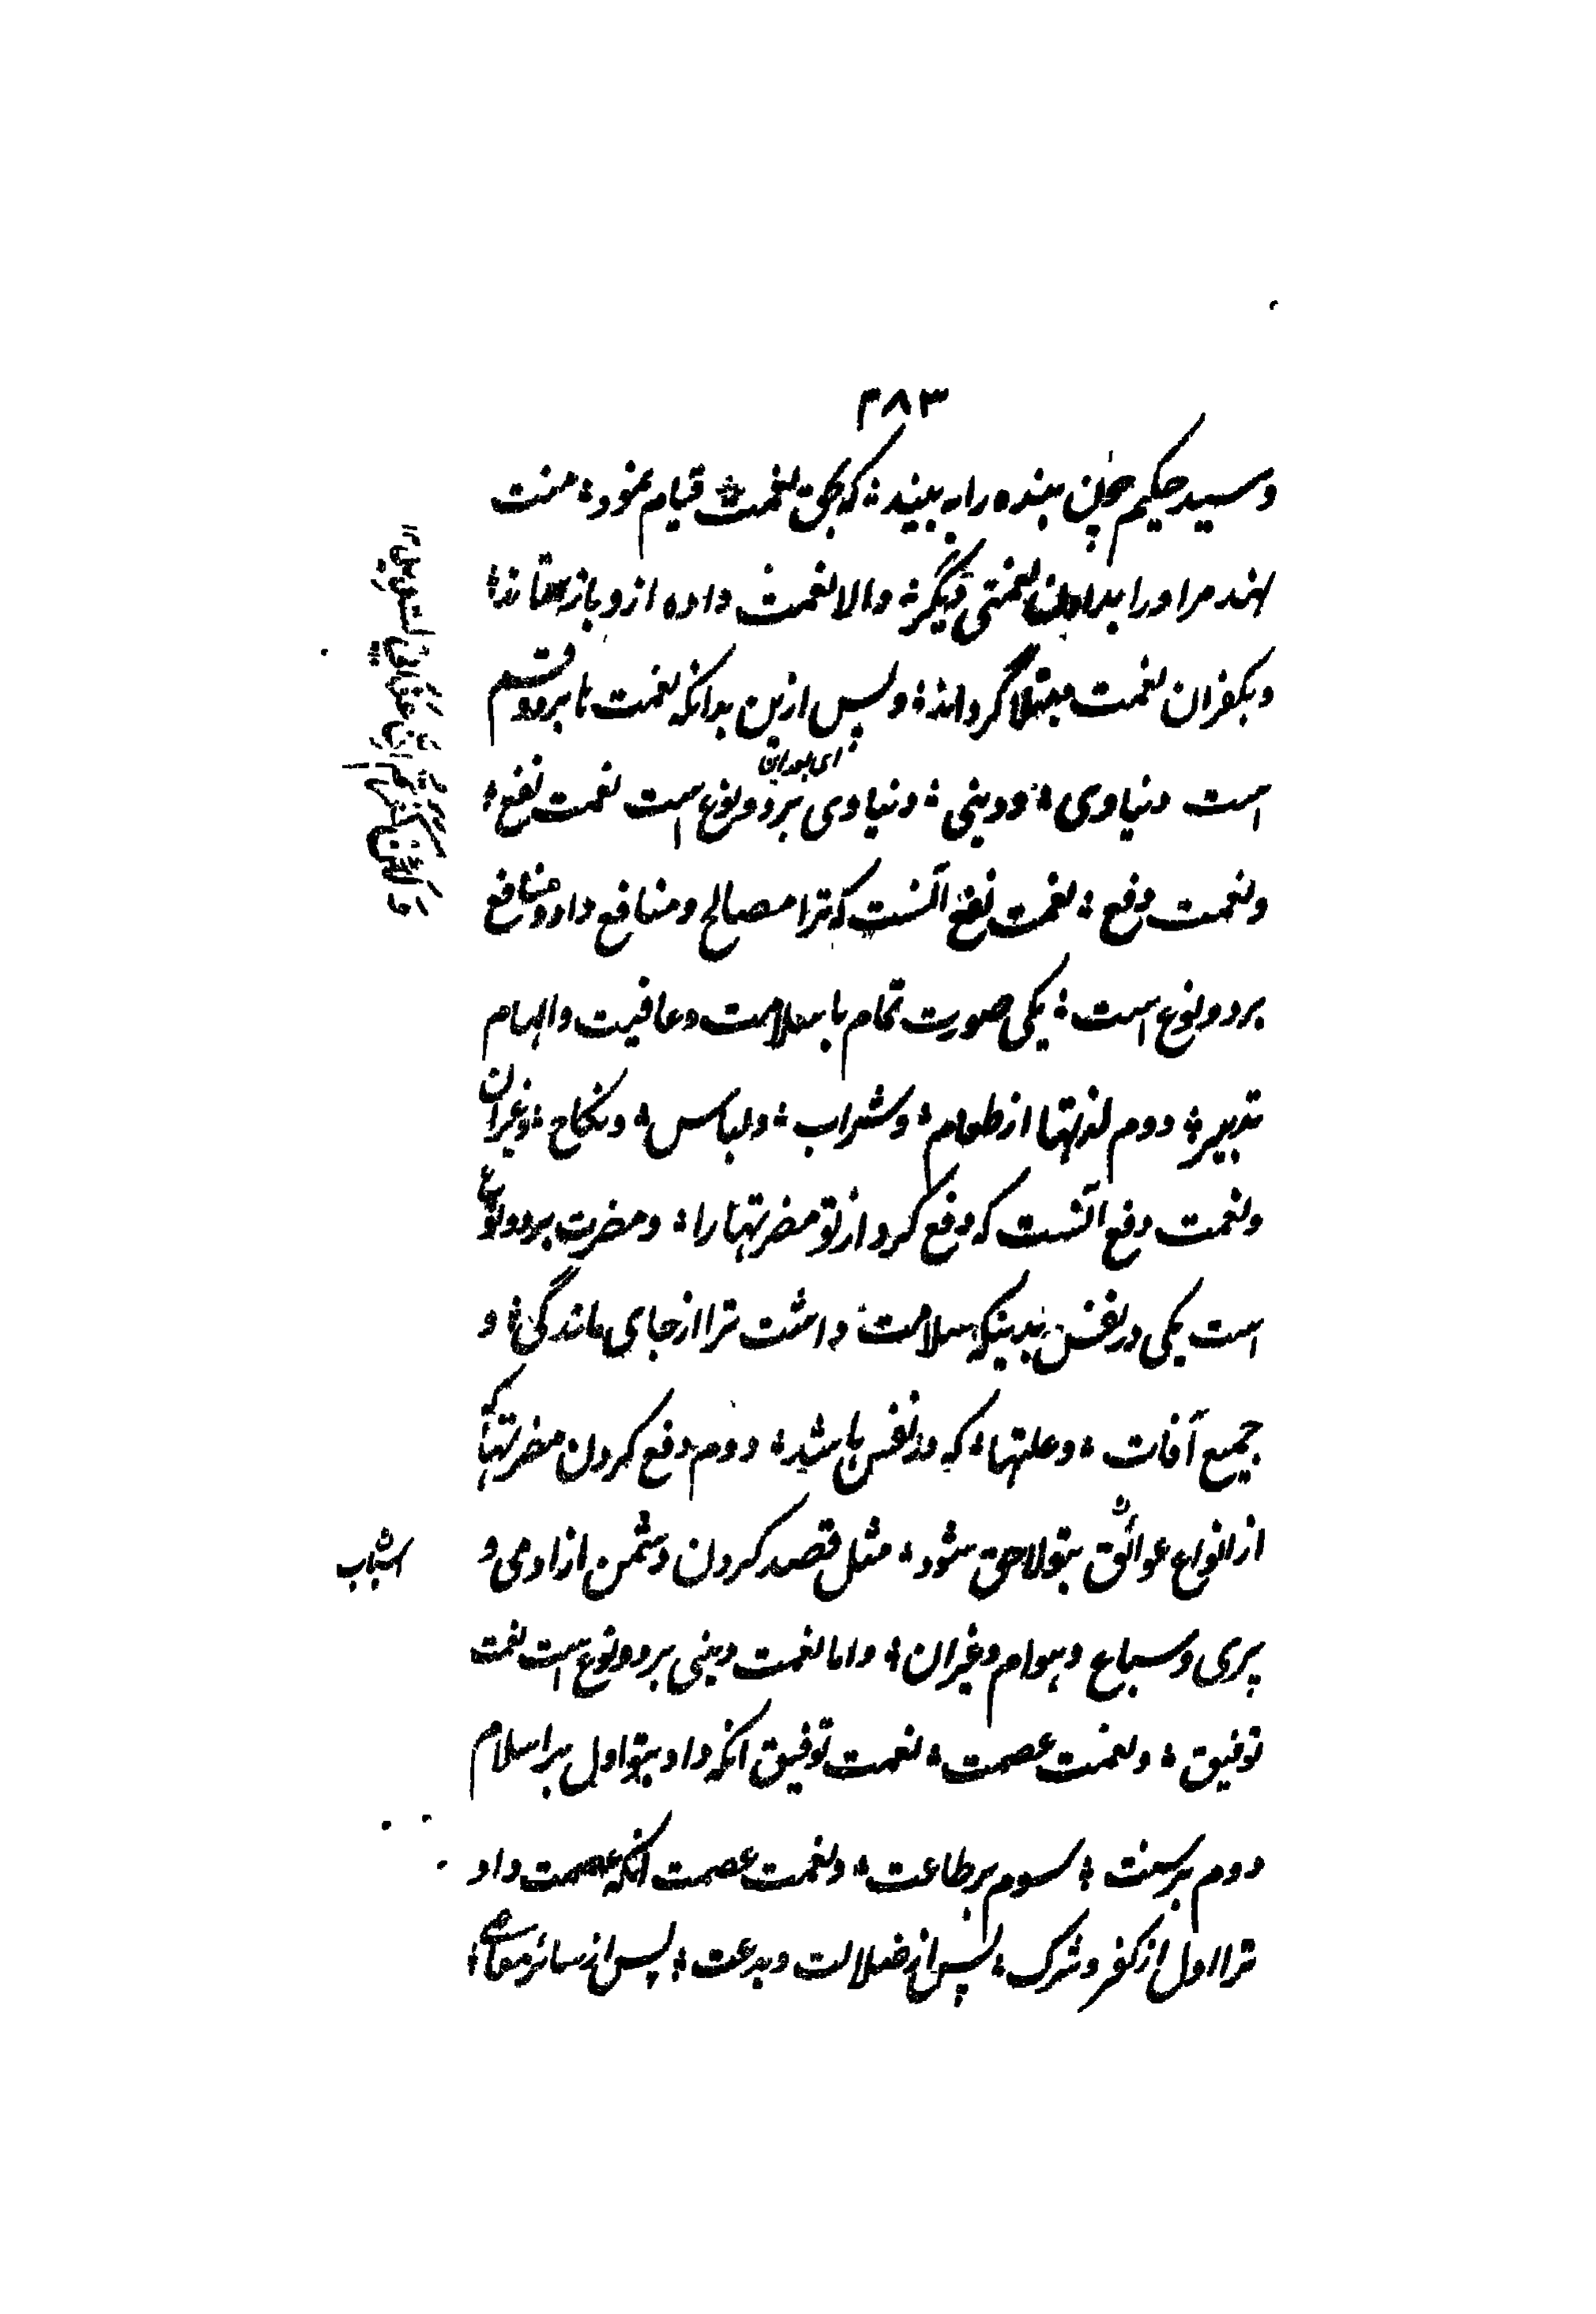 ۲۸۳
و سید حکیم چون بنده را به بیند؛ که بحق نعمت قیام نمود؛ منت
نهد مر او را بدادن نعمتی دیگر؛ والا نعمت داده ازو باز ستاند؛
و بکفران نعمت مبتلا گرداند؛ و پس ازین بدانکه نعمت ما بر دو قسم
است دنیاوی؛ و دینی؛ دنیاوی بر دو نوع است نعمت نفع؛
و نعمت دفع؛ نعمت نفع آنست که ترا مصالح و منافع داد و منافع
بر دو نوع است؛ یکی صورت تمام با سلامت و عافیت و الهام
تدبیر؛ دوم لذتها از طعام؛ و شراب؛ و لباس؛ و نکاح؛ و غیر آن
و نعمت دفع آنست که دفع کرد از تو مضرتها را؛ و مضرت بر دو نوع
است یکی در نفس بدینکه سلامت داشت ترا از جای ماندگی؛ و
جمیع آفات؛ و علتها؛ که در نفس باشد؛ دوم دفع کردن مضرتها که
از انواع عوائق بتو لاحق شود؛ مثل قصد کردن دشمن از ادمی و
پری و سباع و هوام و غیر آن؛ و اما نعمت دینی بر دو نوع است نعمت
توفیق؛ و نعمت عصمت؛ نعمت توفیق انکه داد بتو اول بر اسلام
دوم بر سنت؛ سوم بر طاعت؛ و نعمت عصمت انکه عصمت داد
ترا اول از کفر و شرک؛ پس از ضلالت و بدعت؛ پس از سائر معاصی؛